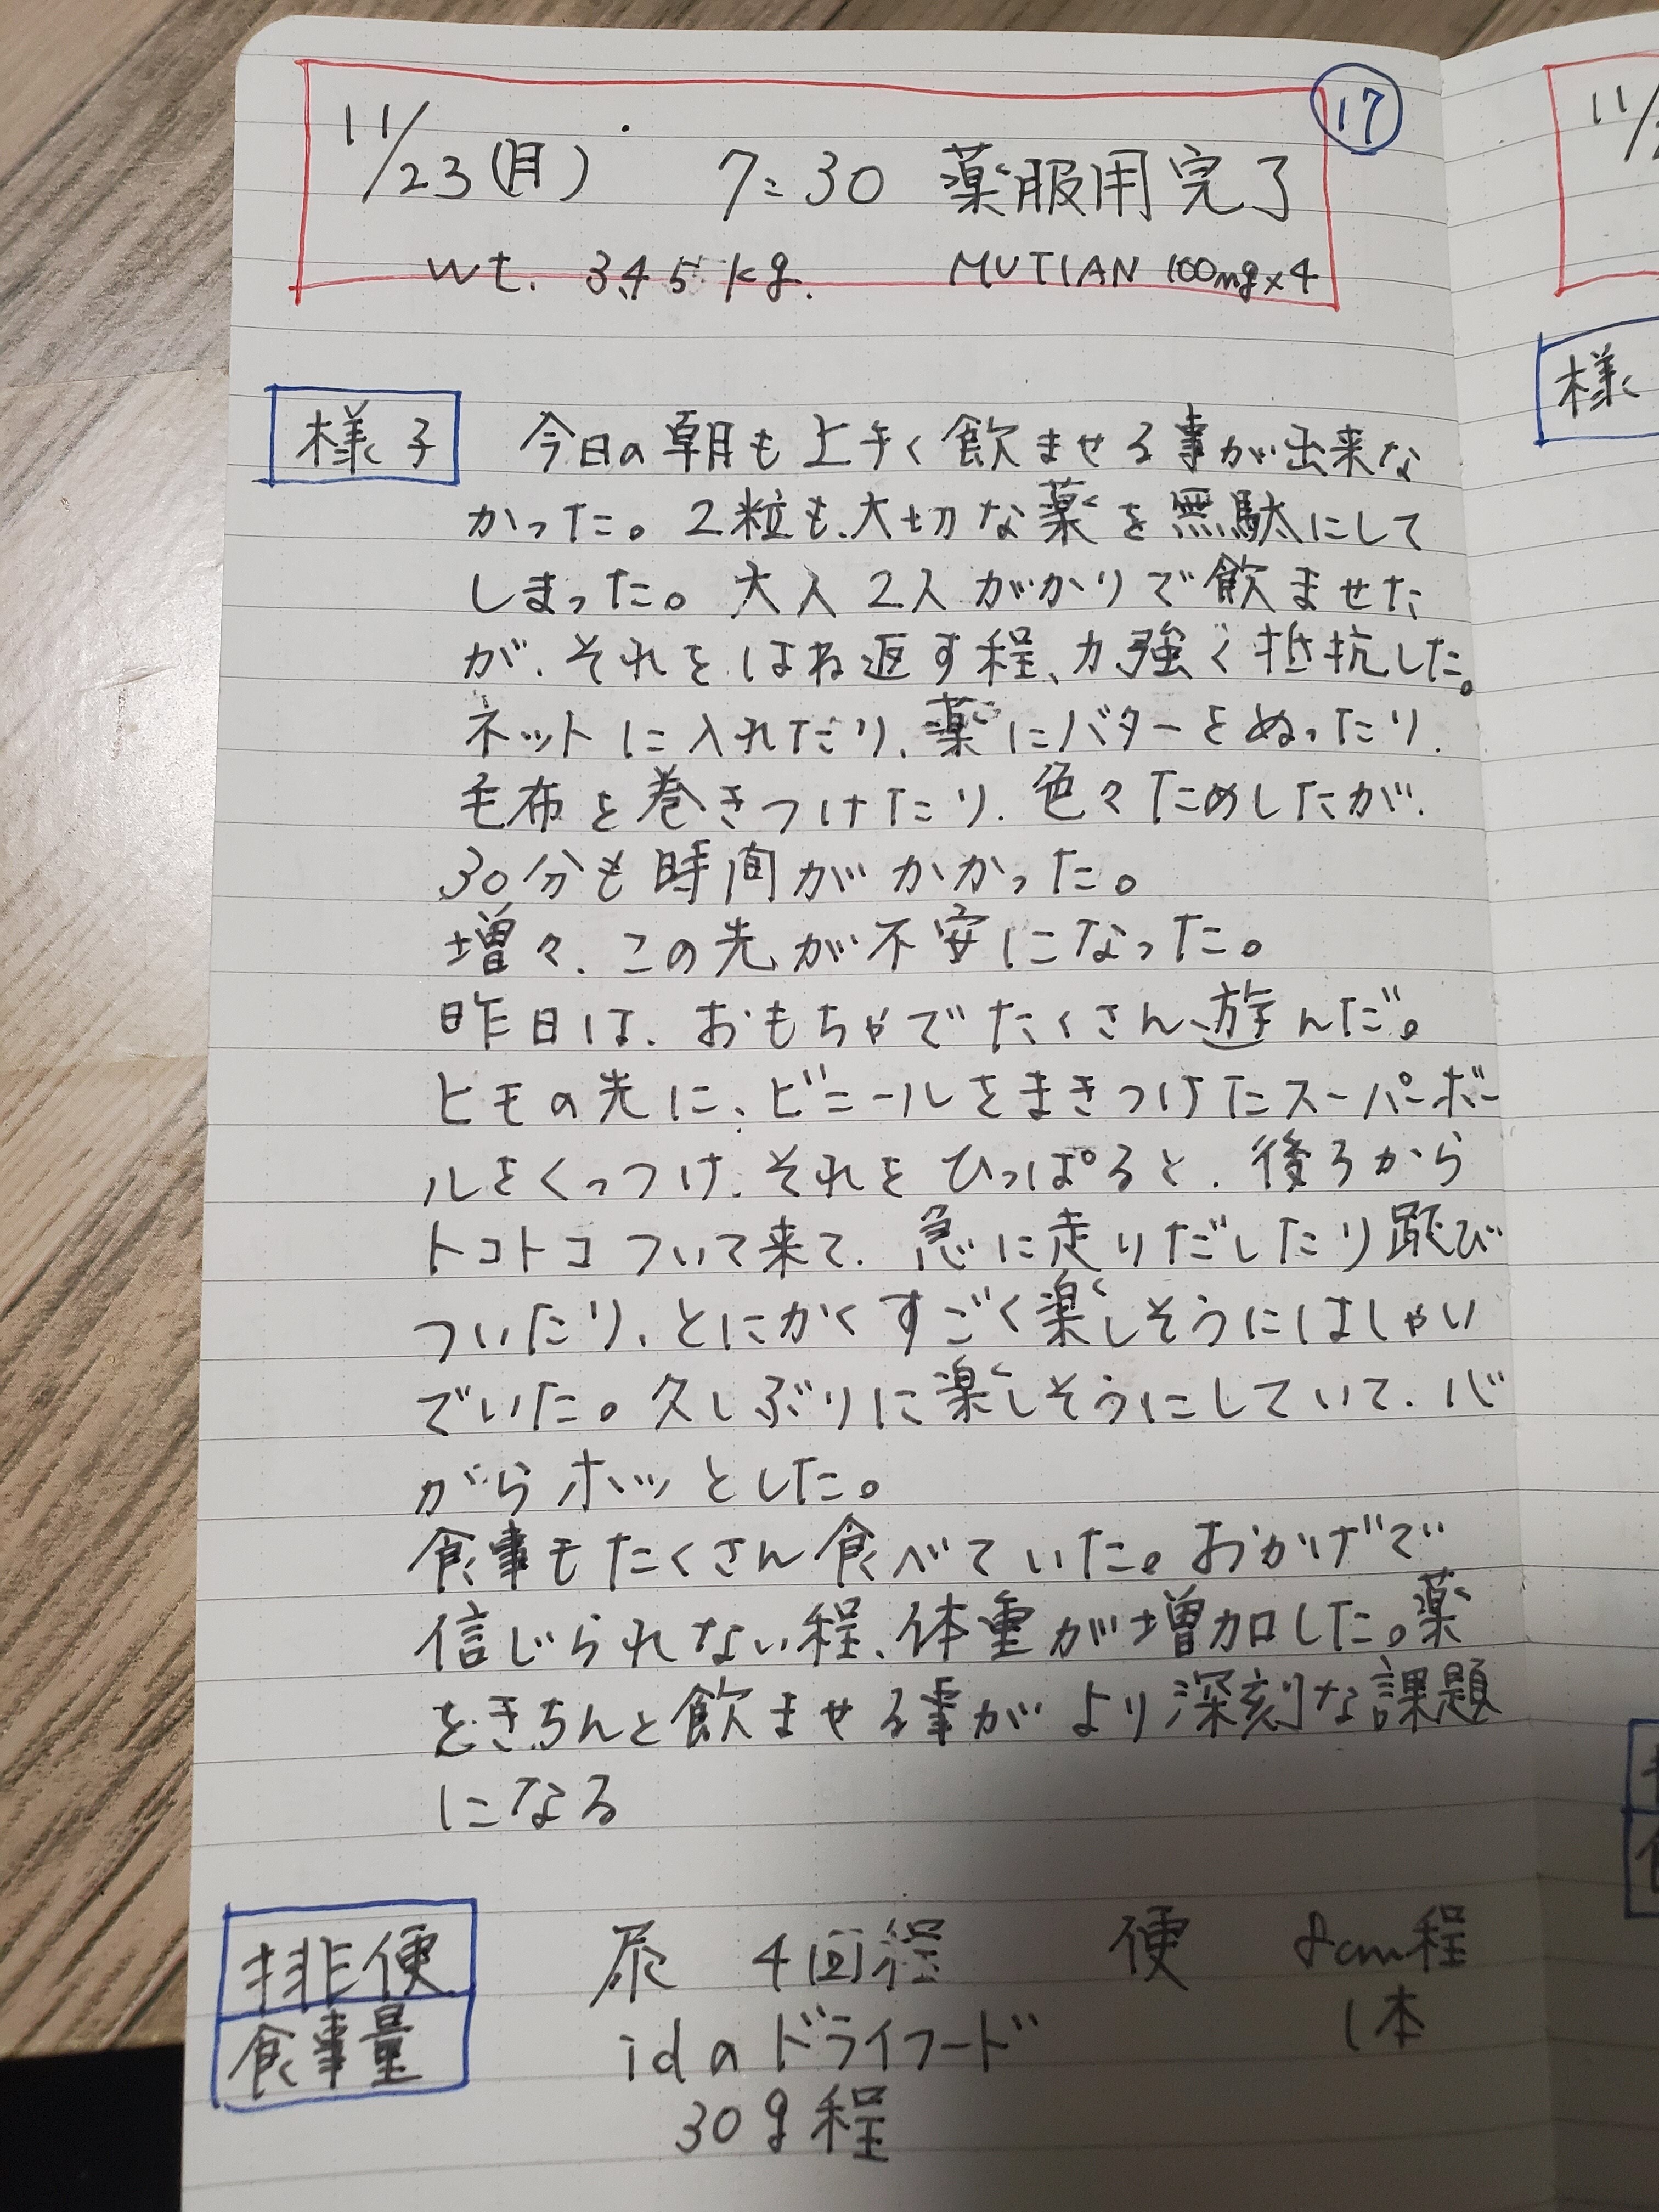 ⑰
11/23(月) 7:30 薬服用完了
wt. 3.45kg. MUTIAN 100mg×4
様子
今日の朝も上手く飲ませる事が出来な
かった。2粒も、大切な薬を無駄にして
しまった。大人2人がかりで飲ませた
が、それをはね返す程、力強く抵抗した。
ネットに入れたり、薬にバターをぬったり、
毛布を巻きつけたり、色々ためしたが、
30分も時間がかかった。
増々、この先が不安になった。
昨日は、おもちゃでたくさん遊んだ。
ヒモの先に、ビニールをまきつけたスーパーボー
ルをくっつけ、それをひっぱると、後ろから
トコトコついて来て、急に走りだしたり跳び
ついたり、とにかくすごく楽しそうにはしゃい
でいた。久しぶりに楽しそうにしていて、心
がらホッとした。
食事もたくさん食べていた。おかげで
信じられない程、体重が増加した。薬
をきちんと飲ませる事がより深刻な課題
になる
排便 尿 4回程 便 8cm程
1本
食事量 idのドライフード
30g程
11/
様